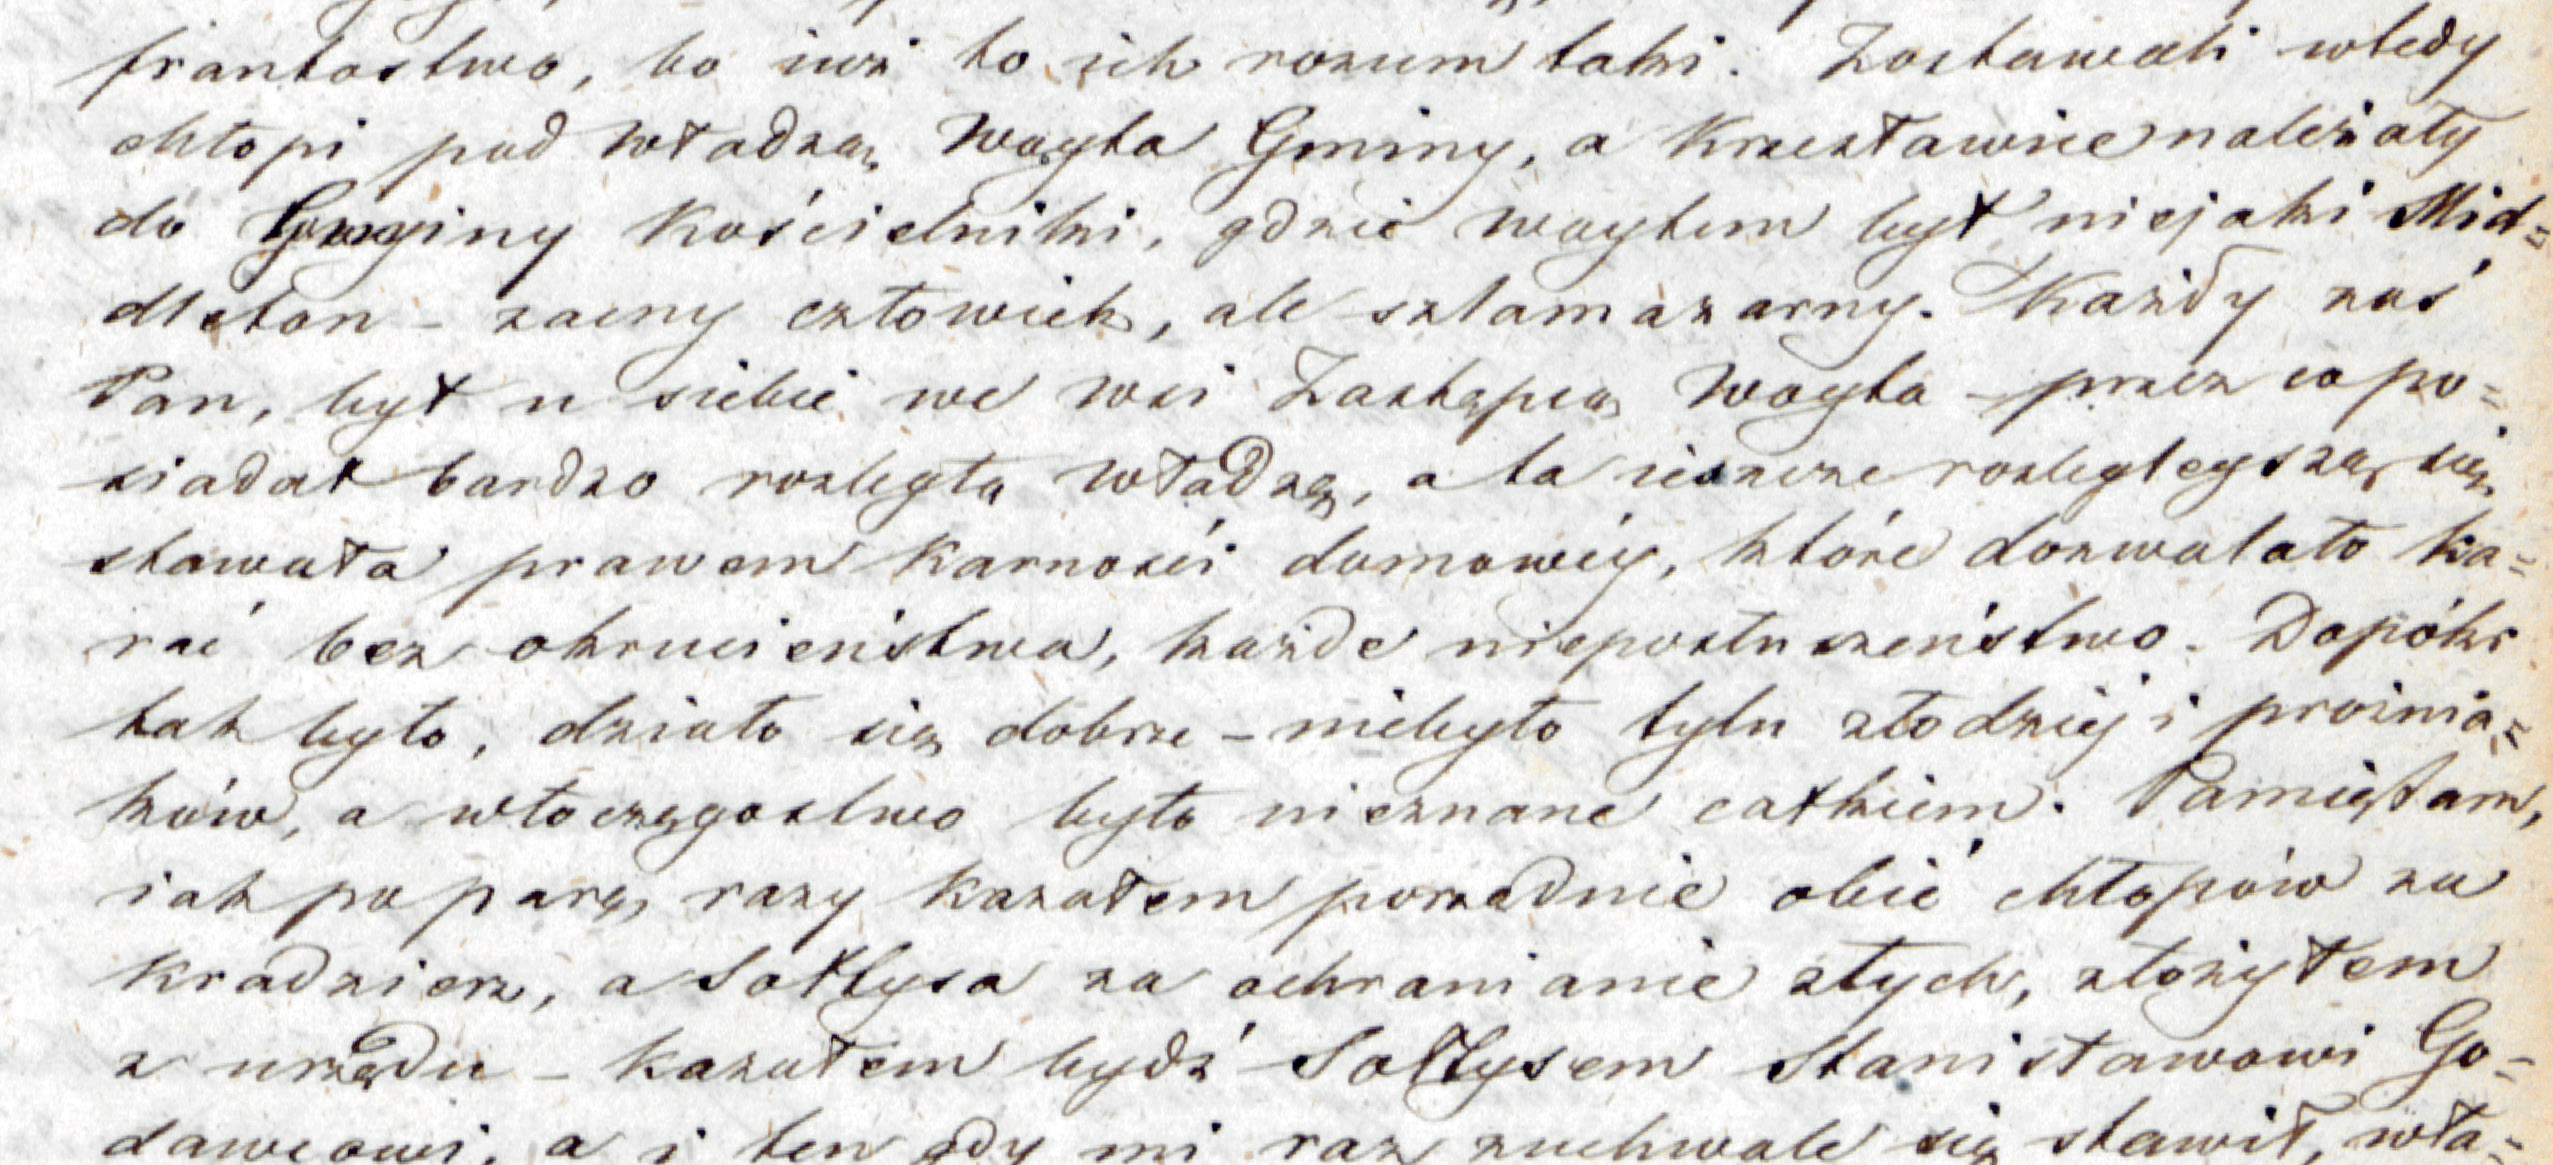 frantostwo, bo iuż to ich rozum taki. Zostawali wtedy
chłopi pod władzą Woyta Gminy, a Krzesławice należały
do Gminy Kościelniki, gdzie woytem był niejaki Mid=
dleton – zacny człowiek, ale szlamazarny. Każdy zaś
Pan, był u siebie we wsi Zastępcą Woyta – przez co po=
siadał bardzo rozległą władzę, a ta ieszcze rozlegleyszą się
stawała prawem Karności domowéy, które dozwalało ka=
rać bez okrucieństwa, każde nieposłuszeństwo. Dopóki
tak było, działo się dobrze – niebyło tylu złodziej i próżnia=
ków, a włoczęgostwo było nieznane całkiem. Pamiętam,
iak po parę razy kazałem porządnie obić chłopów za
Kradzierz, a Sołtysa za ochranianie złych, złożyłem
z urzędu – kazałem bydź Sołtysem Stanisławowi Go=
dawcowi, a i ten gdy mi raz zuchwale się stawił, wła=